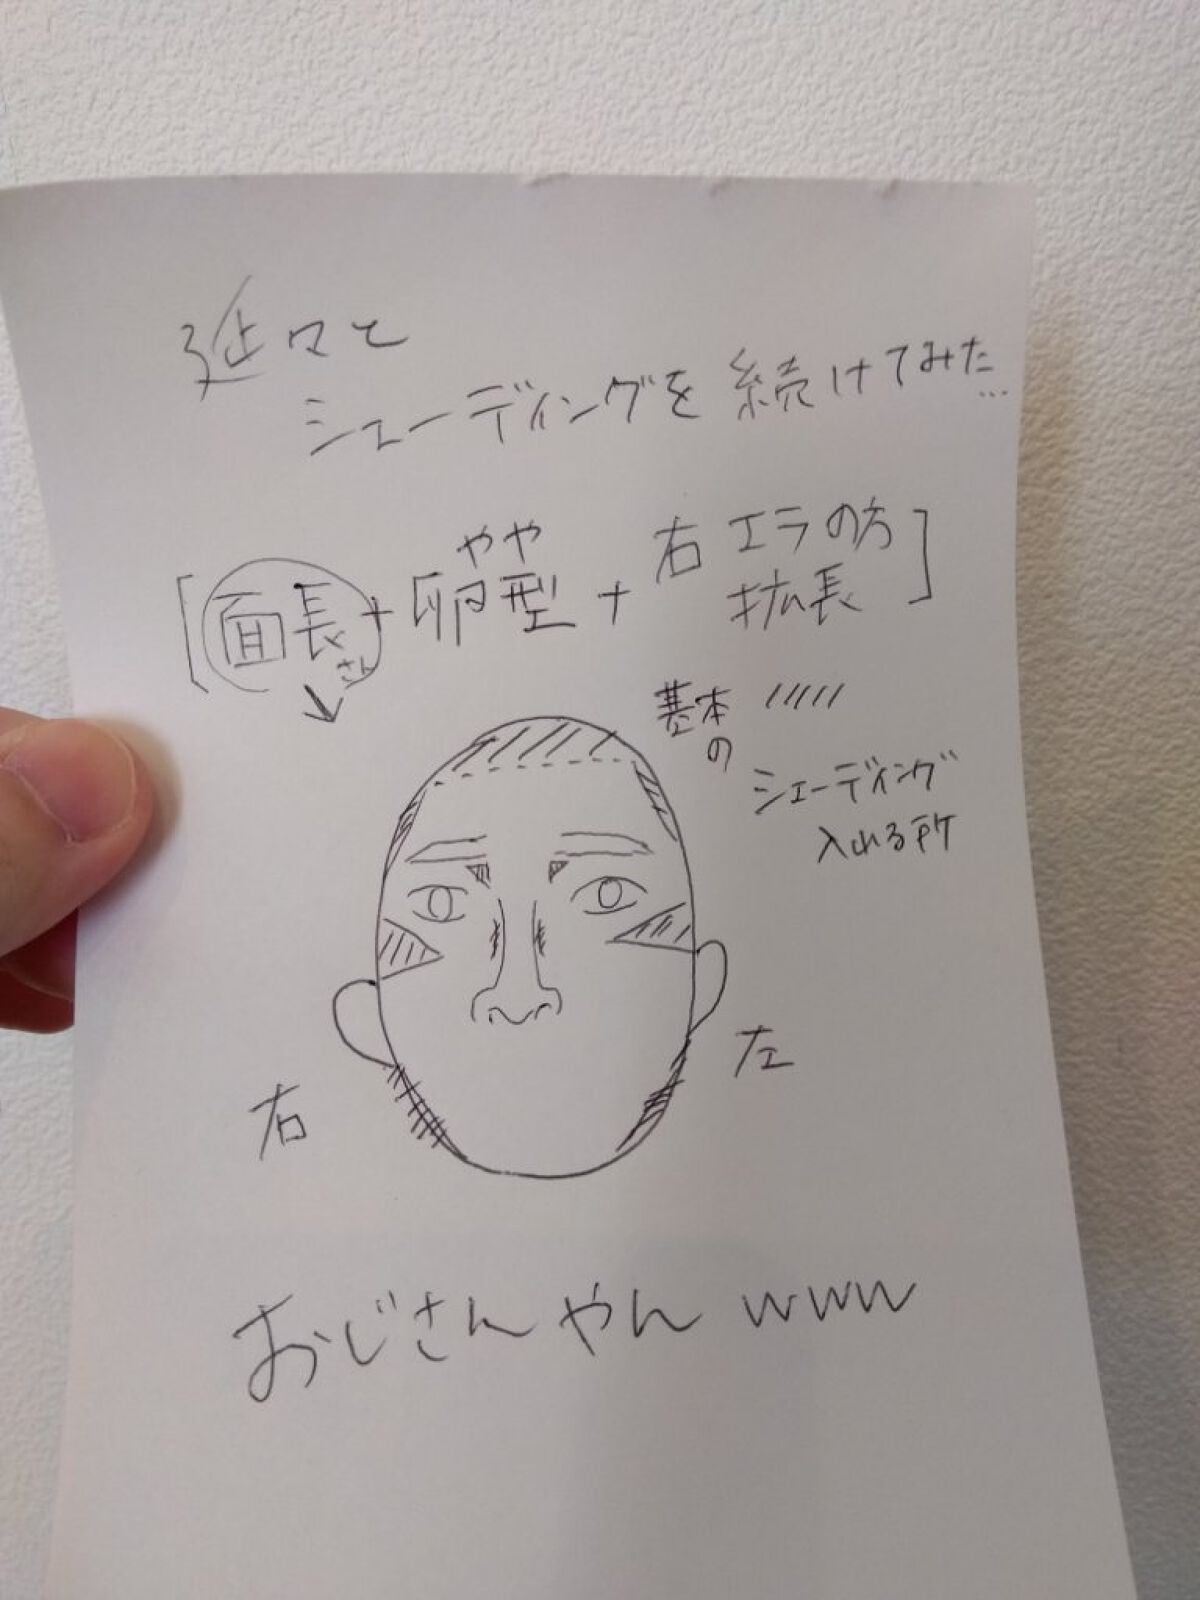 延々と
シェーディングを続けてみた...
[面長さん + やや卵型 + 右エラの方拡長]
基本の
シェーディング
入れる所
右
左
おじさんやんwww